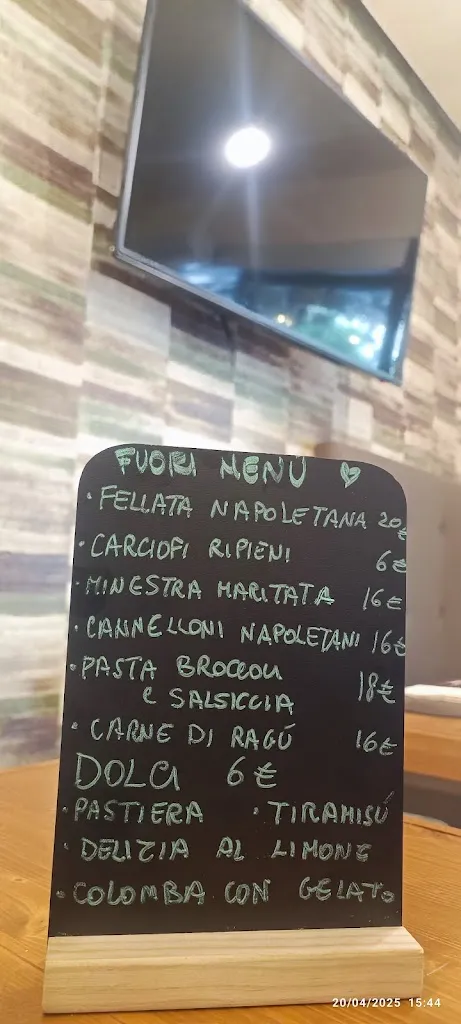 FUORI MENU ♡
· FELLATA NAPOLETANA 20€
· CARCIOFI RIPIENI 6€
· MINESTRA MARITATA 16€
· CANNELLONI NAPOLETANI 16€
· PASTA BROCCOLI
e SALSICCIA 18€
· CARNE DI RAGÚ 16€
DOLCI 6€
· PASTIERA · TIRAMISÚ
· DELIZIA AL LIMONE
· COLOMBA CON GELATO
20/04/2025 15:44